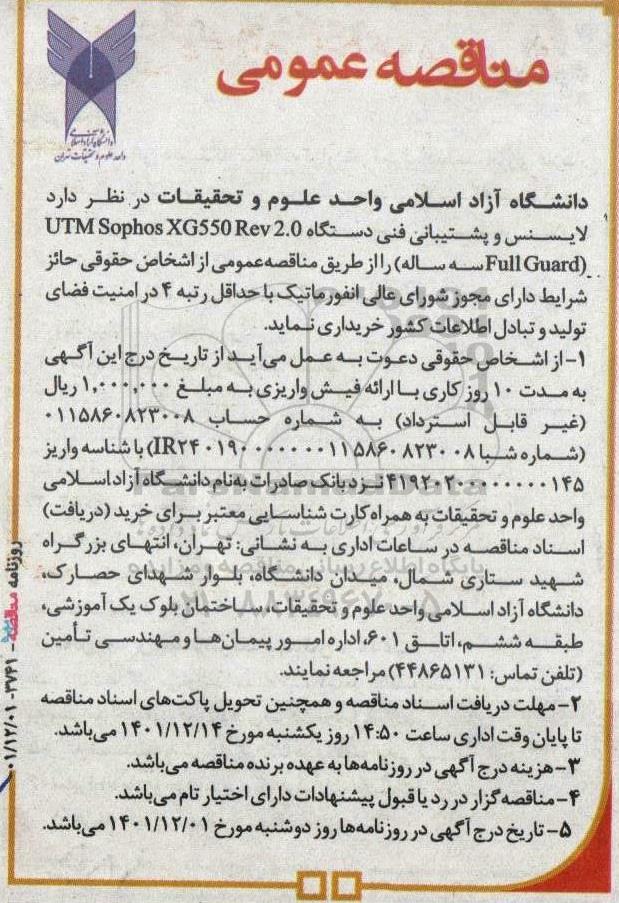 مناقصه عمومی
دانشگاه آزاد اسلامی
واحد علوم و تحقیقات تهران
دانشگاه آزاد اسلامی واحد علوم و تحقیقات در نظر دارد
لایسنس و پشتیبانی فنی دستگاه UTM Sophos XG550 Rev 2.0
(Full Guard سه ساله) را از طریق مناقصه‌عمومی از اشخاص حقوقی حائز
شرایط دارای مجوز شورای عالی انفورماتیک با حداقل رتبه ۴ در امنیت فضای
تولید و تبادل اطلاعات کشور خریداری نماید.
۱- از اشخاص حقوقی دعوت به عمل می‌آید از تاریخ درج این آگهی
به مدت ۱۰ روز کاری با ارائه فیش واریزی به مبلغ ۱,۰۰۰,۰۰۰ ریال
(غیر قابل استرداد) به شماره حساب ۰۱۱۵۸۶۰۸۲۳۰۰۸
(شماره شبا IR۲۴۰۱۹۰۰۰۰۰۰۰۰۱۱۵۸۶۰۸۲۳۰۰۸) با شناسه واریز
۴۱۹۲۰۲۰۰۰۰۰۰۰۰۰۱۴۵ نزد بانک صادرات به‌نام دانشگاه آزاد اسلامی
واحد علوم و تحقیقات به همراه کارت شناسایی معتبر برای خرید (دریافت)
اسناد مناقصه در ساعات اداری به نشانی: تهران، انتهای بزرگراه
شهید ستاری شمال، میدان دانشگاه، بلوار شهدای حصارک،
دانشگاه آزاد اسلامی واحد علوم و تحقیقات، ساختمان بلوک یک آموزشی،
طبقه ششم، اتاق ۶۰۱، اداره امور پیمان‌ها و مهندسی تأمین
(تلفن تماس: ۴۴۸۶۵۱۳۱) مراجعه نمایند.
۲- مهلت دریافت اسناد مناقصه و همچنین تحویل پاکت‌های اسناد مناقصه
تا پایان وقت اداری ساعت ۱۴:۵۰ روز یکشنبه مورخ ۱۴۰۱/۱۲/۱۴ می‌باشد.
۳- هزینه درج آگهی در روزنامه‌ها به عهده برنده مناقصه می‌باشد.
۴- مناقصه‌گزار در رد یا قبول پیشنهادات دارای اختیار تام می‌باشد.
۵- تاریخ درج آگهی در روزنامه‌ها روز دوشنبه مورخ ۱۴۰۱/۱۲/۰۱ می‌باشد.
روزنامه مناقصه - ۳۷۴۱ - ۰۱/۱۲/۰۱
ParsNamadData
پایگاه اطلاع رسانی مناقصه و مزایده